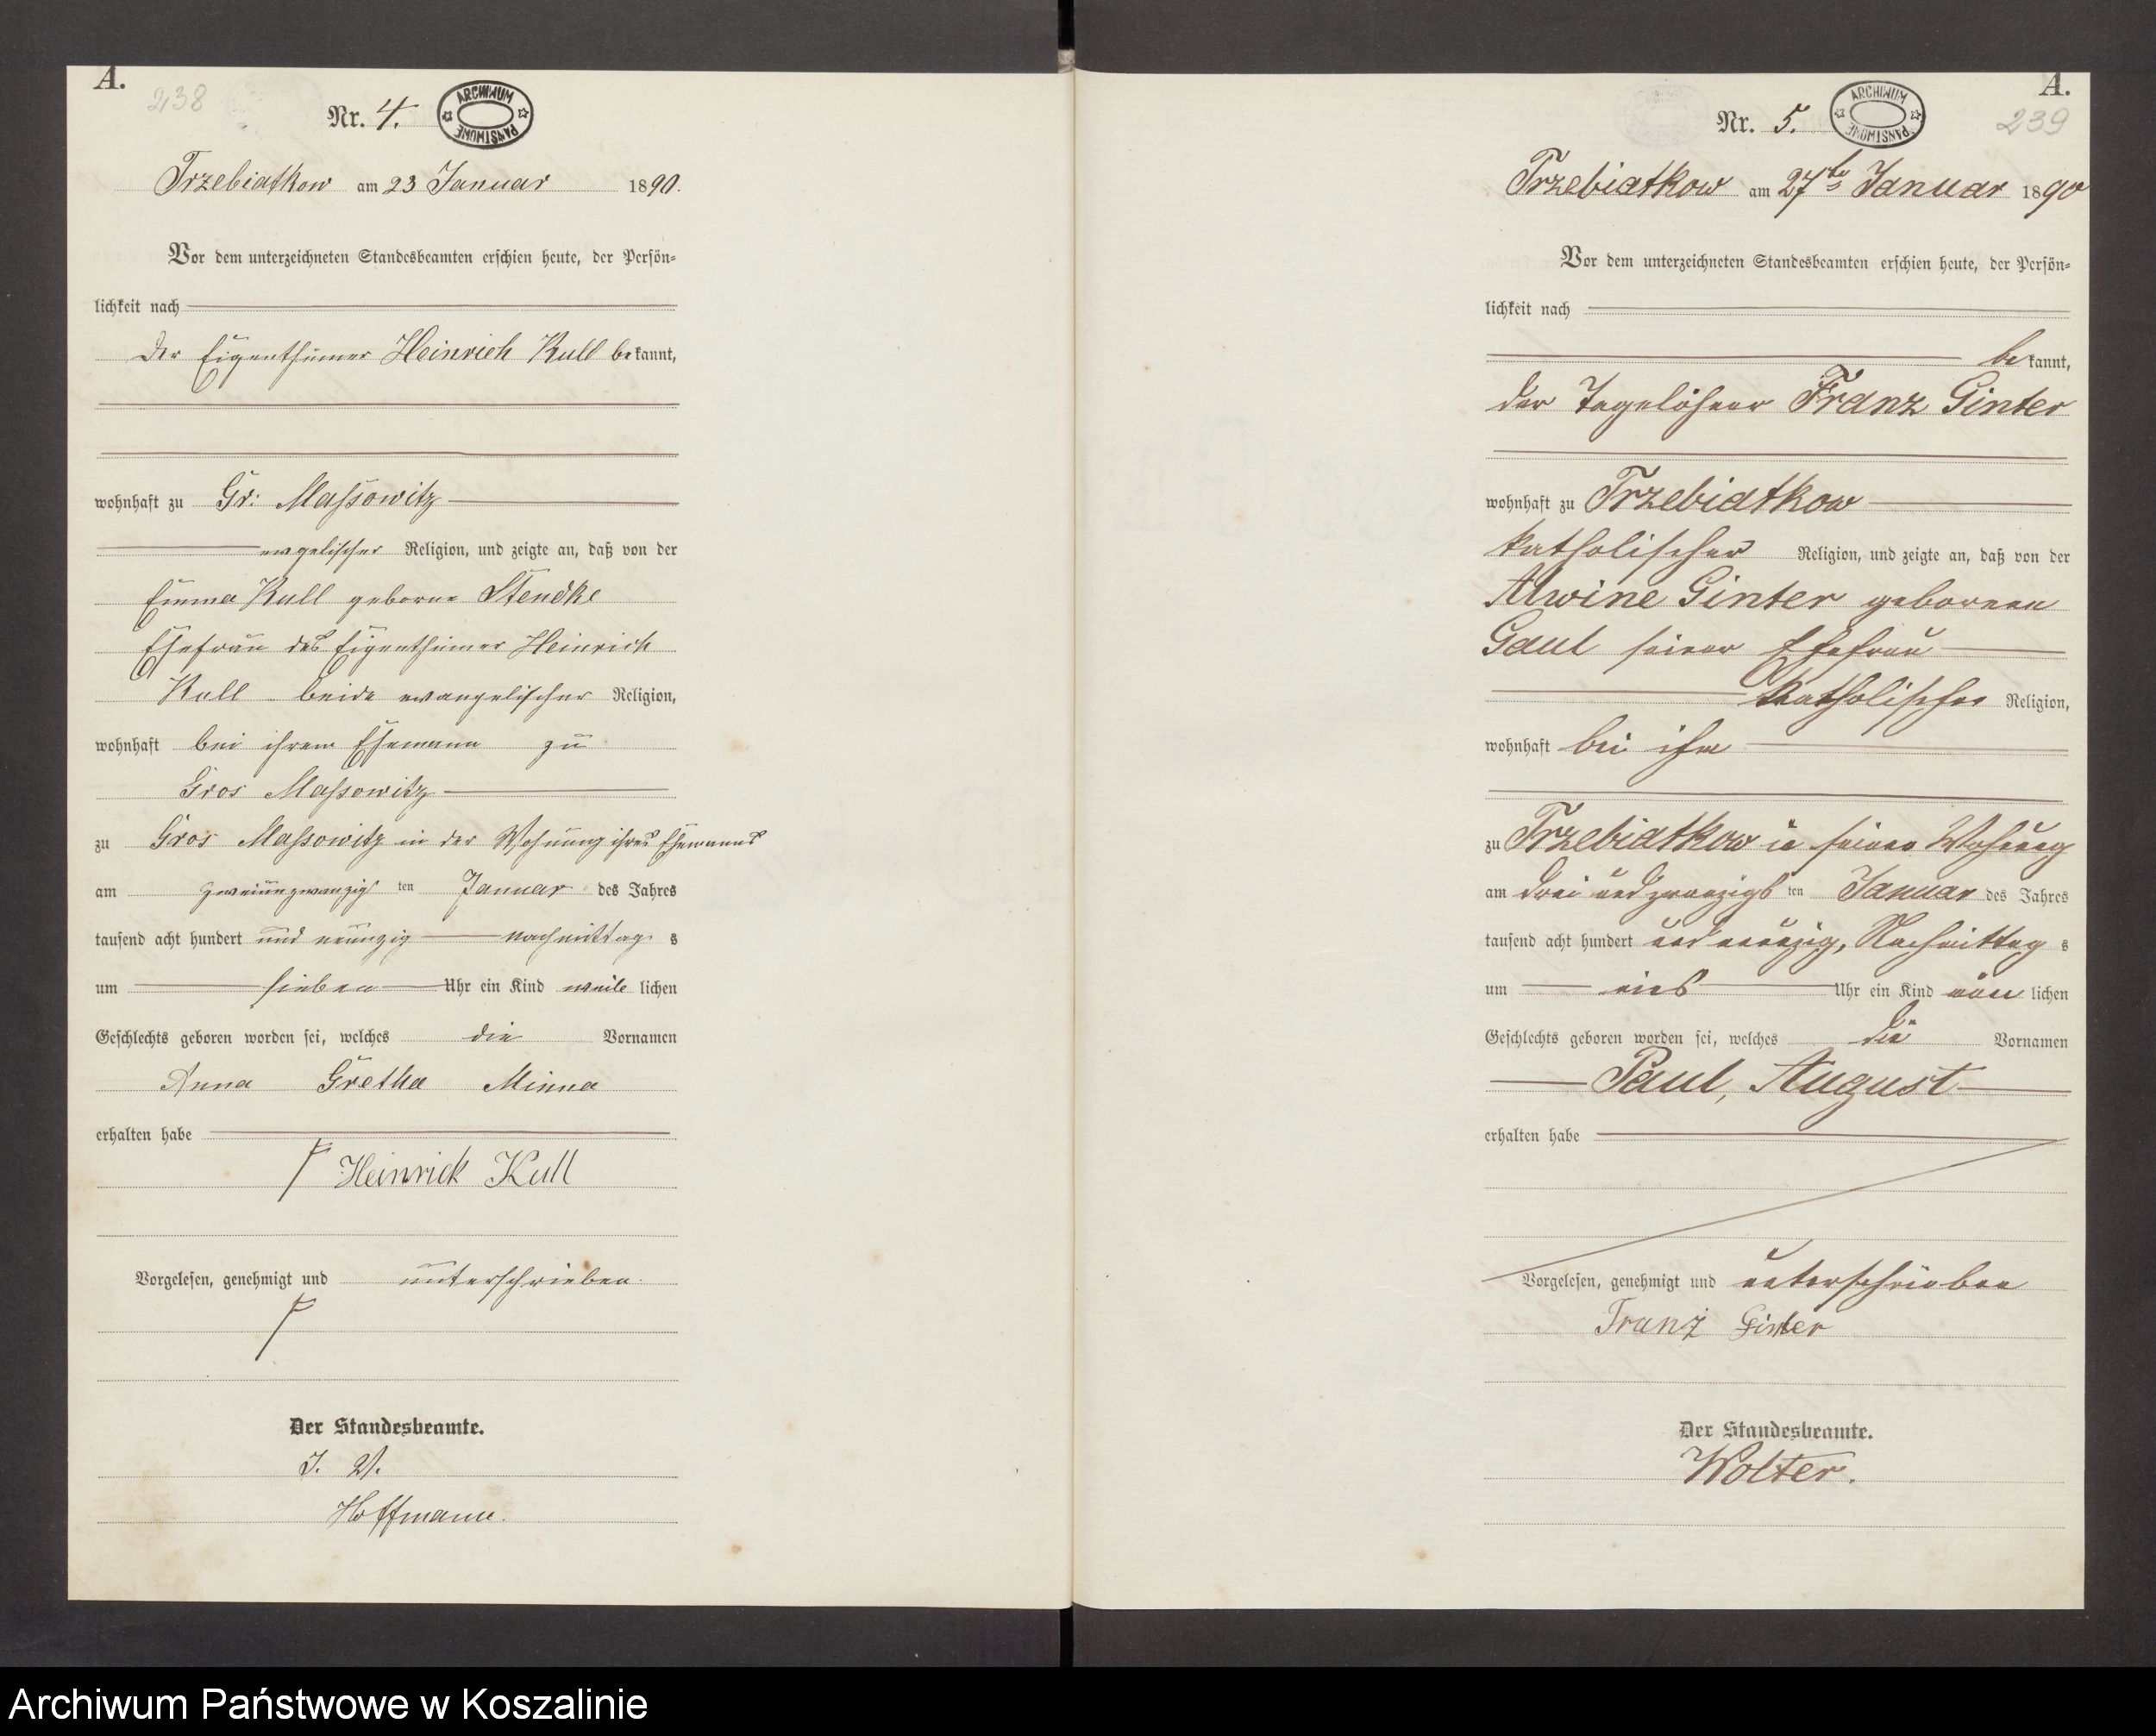 A.
238
Nr. 4.
ARCHIWUM PAŃSTWOWE
Trzebiatkow am 23 Januar 1890.
Vor dem unterzeichneten Standesbeamten erschien heute, der Persön-
lichkeit nach
Der Eigenthümer Heinrich Kull bekannt,
wohnhaft zu Gr: Massowitz
evgelischer Religion, und zeigte an, daß von der
Emma Kull geborne Stendke
Ehefrau des Eigenthümer Heinrich
Kull beide evangelischer Religion,
wohnhaft bei ihrem Ehemann zu
Gros Massowitz
zu Gros Massowitz in der Wohnung ihres Ehemanns
am zweiunzwanzigs ten Januar des Jahres
tausend acht hundert und neunzig nachmittag s
um sieben Uhr ein Kind weib lichen
Geschlechts geboren worden sei, welches die Vornamen
Anna Gretha Minna
erhalten habe
Heinrick Kull
Vorgelesen, genehmigt und unterschrieben.
Der Standesbeamte.
J. V.
Hoffmann.
A.
239
Nr. 5.
ARCHIWUM PAŃSTWOWE
Trzebiatkow am 27ten Januar 1890
Vor dem unterzeichneten Standesbeamten erschien heute, der Persön-
lichkeit nach
bekannt,
der Tagelöhner Franz Ginter
wohnhaft zu Trzebiatkow
katholischer Religion, und zeigte an, daß von der
Alwine Ginter geborenen
Gaul seiner Ehefrau
katholischer Religion,
wohnhaft bei ihm
zu Trzebiatkow in seiner Wohnung
am drei und zwanzigs ten Januar des Jahres
tausend acht hundert und neunzig, Nachmittag s
um eins Uhr ein Kind män lichen
Geschlechts geboren worden sei, welches die Vornamen
Paul, August
erhalten habe
Vorgelesen, genehmigt und unterschrieben
Franz Ginter
Der Standesbeamte.
Wolter.
Archiwum Państwowe w Koszalinie